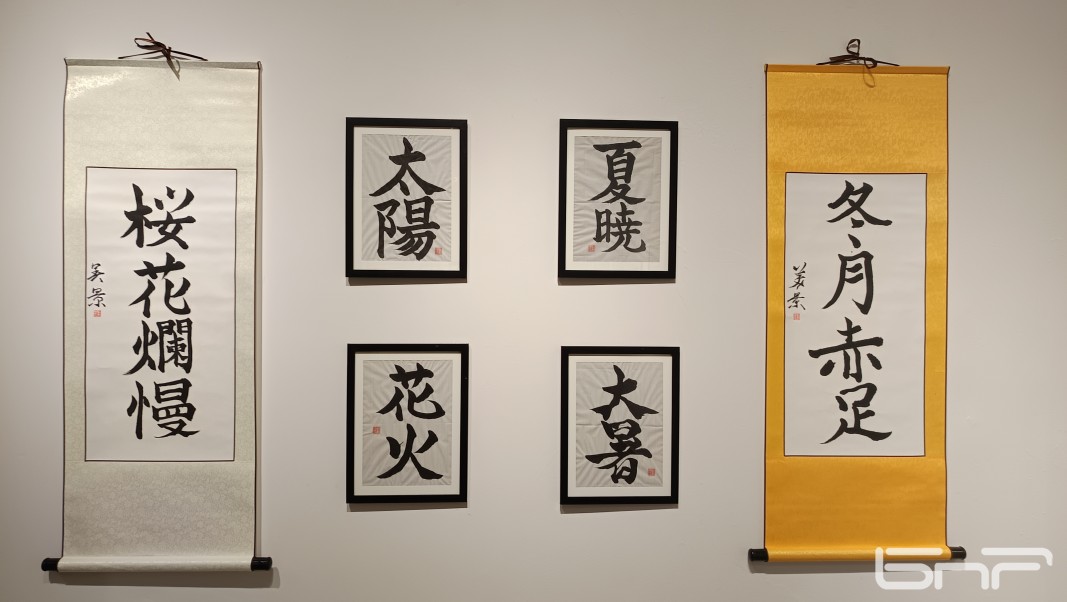 桜花爛慢
美景
太陽
夏暁
花火
大暑
冬月赤足
美景